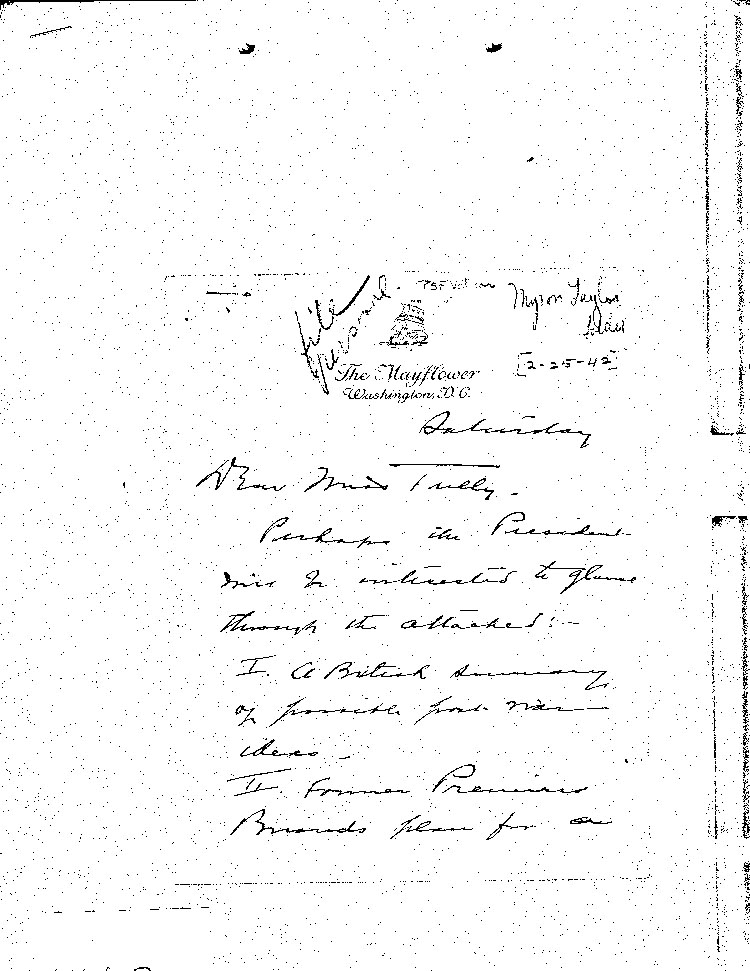 file
personal
PSF
Myron Taylor
[2-25-42]
The Mayflower
Washington, D.C.
Saturday
Dear Miss Tully -
Perhaps the President
will be interested to glance
through the attached: -
I. A British summary
of possible post war
ideas -
II. Former Premier
Briands plan for a